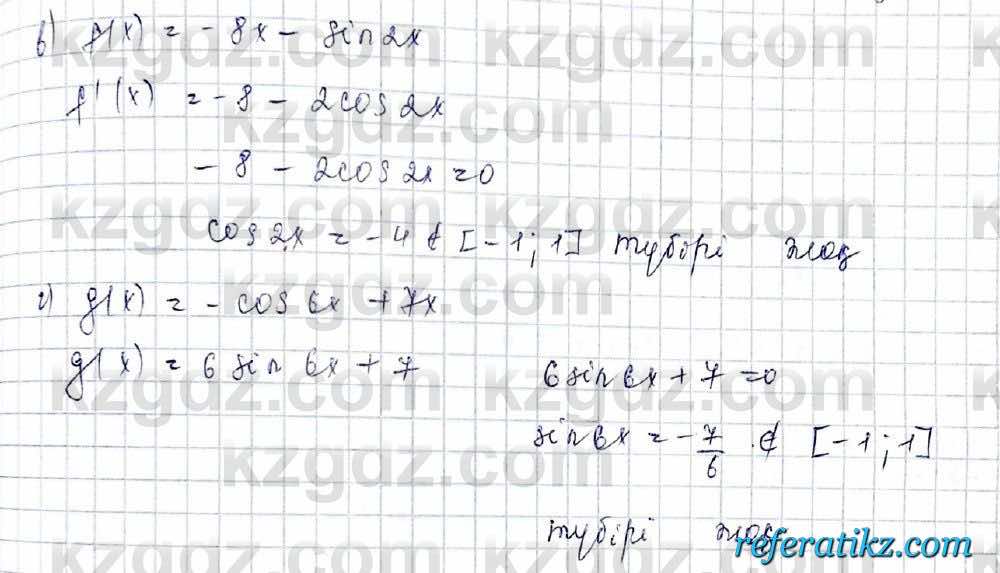 в) f(x) = - 8x - sin 2x
f'(x) = - 8 - 2cos 2x
- 8 - 2cos 2x = 0
cos 2x = - 4 ∉ [- 1; 1] түбірі жоқ
г) g(x) = - cos 6x + 7x
g'(x) = 6 sin 6x + 7
6 sin 6x + 7 = 0
sin 6x = - 7/6 ∉ [- 1; 1]
түбірі жоқ
kzgdz.com
referatikz.com